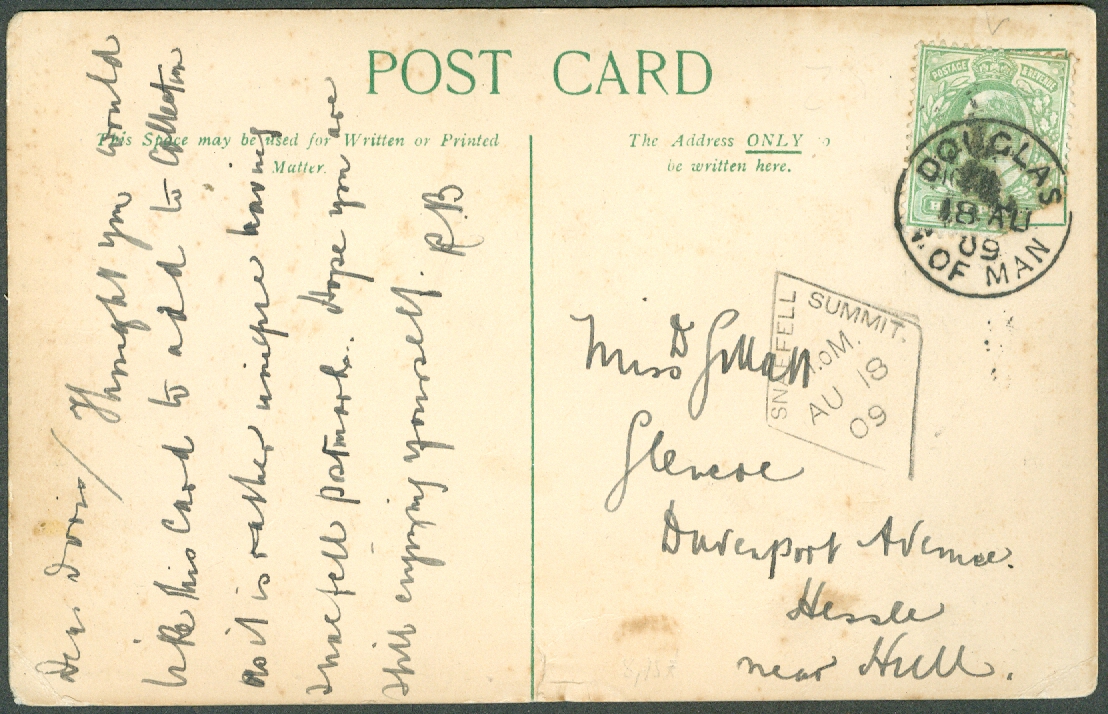 POST CARD
This Space may be used for Written or Printed
Matter.
The Address ONLY to
be written here.
POSTAGE & REVENUE
DOUGLAS
18 AU
09
I. OF MAN
SNAEFELL SUMMIT.
I.oM.
AU 18
09
Dear Doris / Thought you would
like this card to add to collection
as it is rather unique having
Snaefell postmark. Hope you are
still enjoying yourself. R.B
Miss D Gillatt
Glencoe
Davenport Avenue.
Hessle
near Hull.